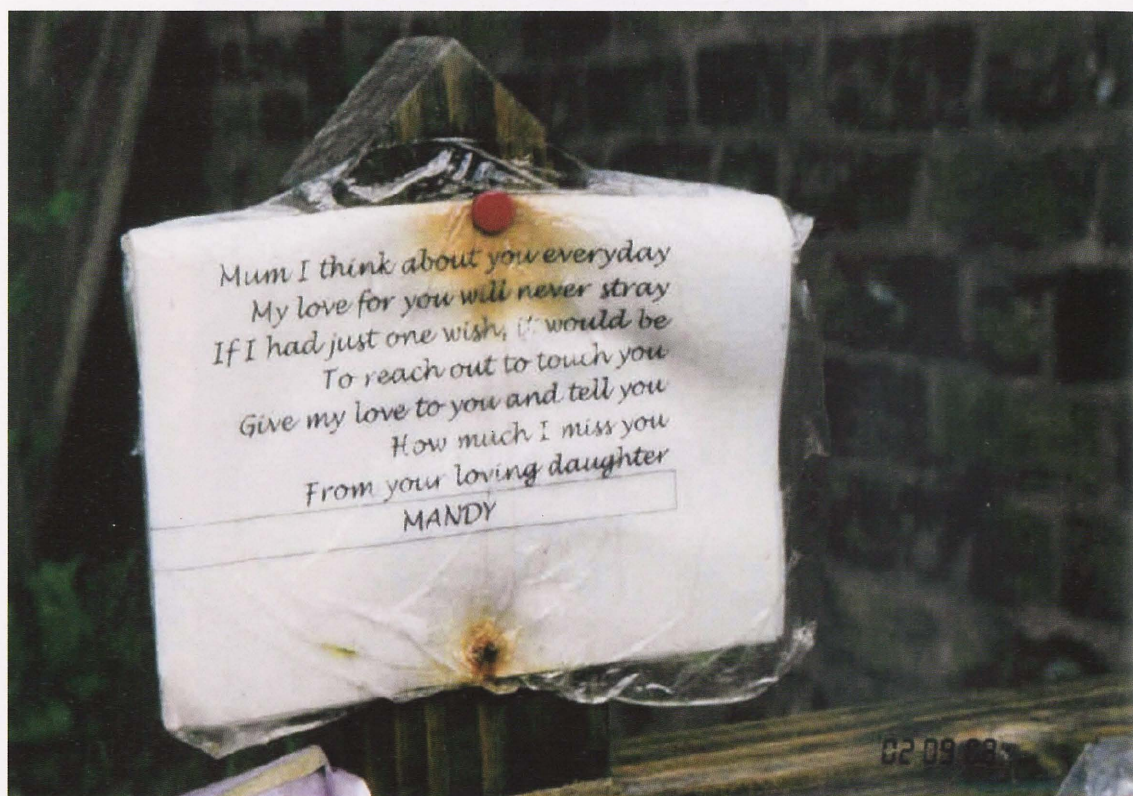 Mum I think about you everyday
My love for you will never stray
If I had just one wish, it would be
To reach out to touch you
Give my love to you and tell you
How much I miss you
From your loving daughter
MANDY
'02 09 08